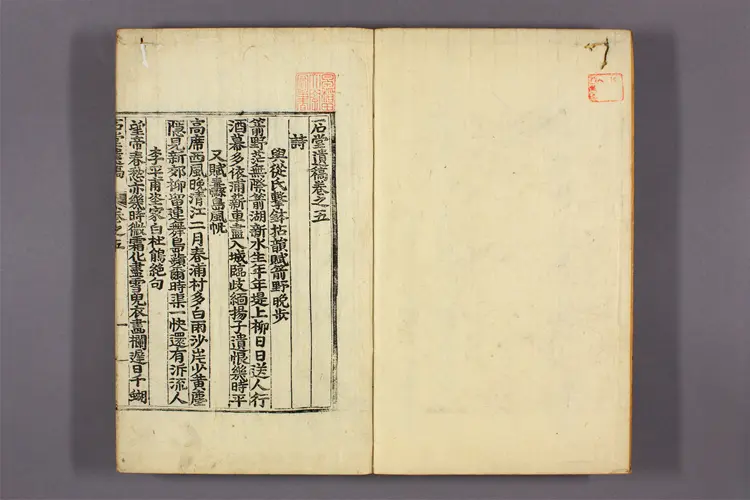 石堂遺稿卷之五
詩
與從氏擊鉢拈韻賦箭野晩步
箭野茫無際箭湖新水生年年堤上柳日日送人行
酒幕多依浦薪車盡入城臨歧緬揚子遺恨幾時平
又賦纛島風帆
高席西風晩淸江二月春浦村多白雨沙岸少黃塵
隱見新郊柳留連舞島蘋爾時渠一快還有泝流人
李平甫 家白杜鵑絶句
望帝春愁亦幾時微霜化盡雪兒衣畵欄遲日千蝴
石堂遺稿 卷之五 一